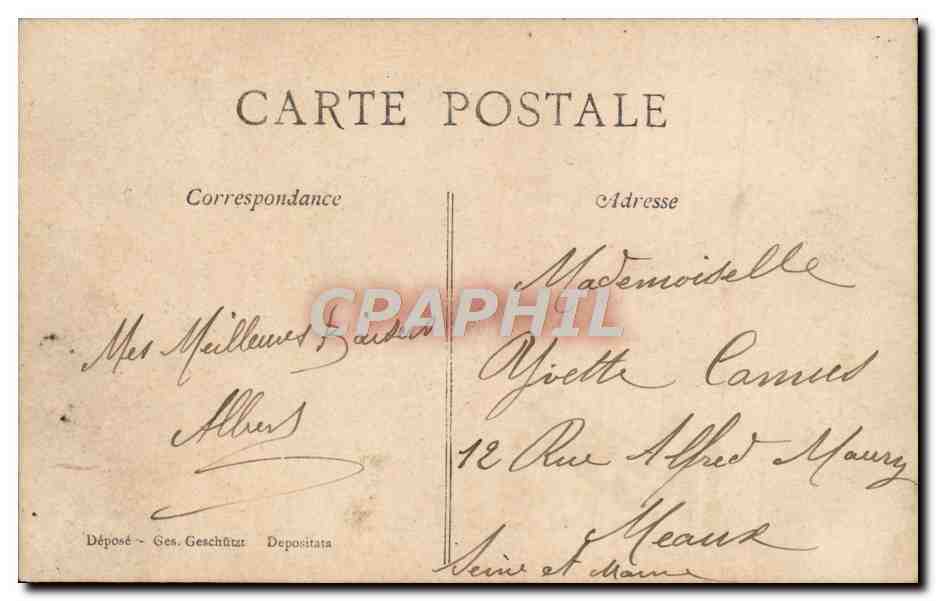 CARTE POSTALE
Correspondance
Adresse
Mes Meilleures Baisers
Albert
Mademoiselle
Yvette Camus
12 Rue Alfred Maury
Meaux
Seine et Marne
Déposé - Ges. Geschützt Depositata
CPAPHIL